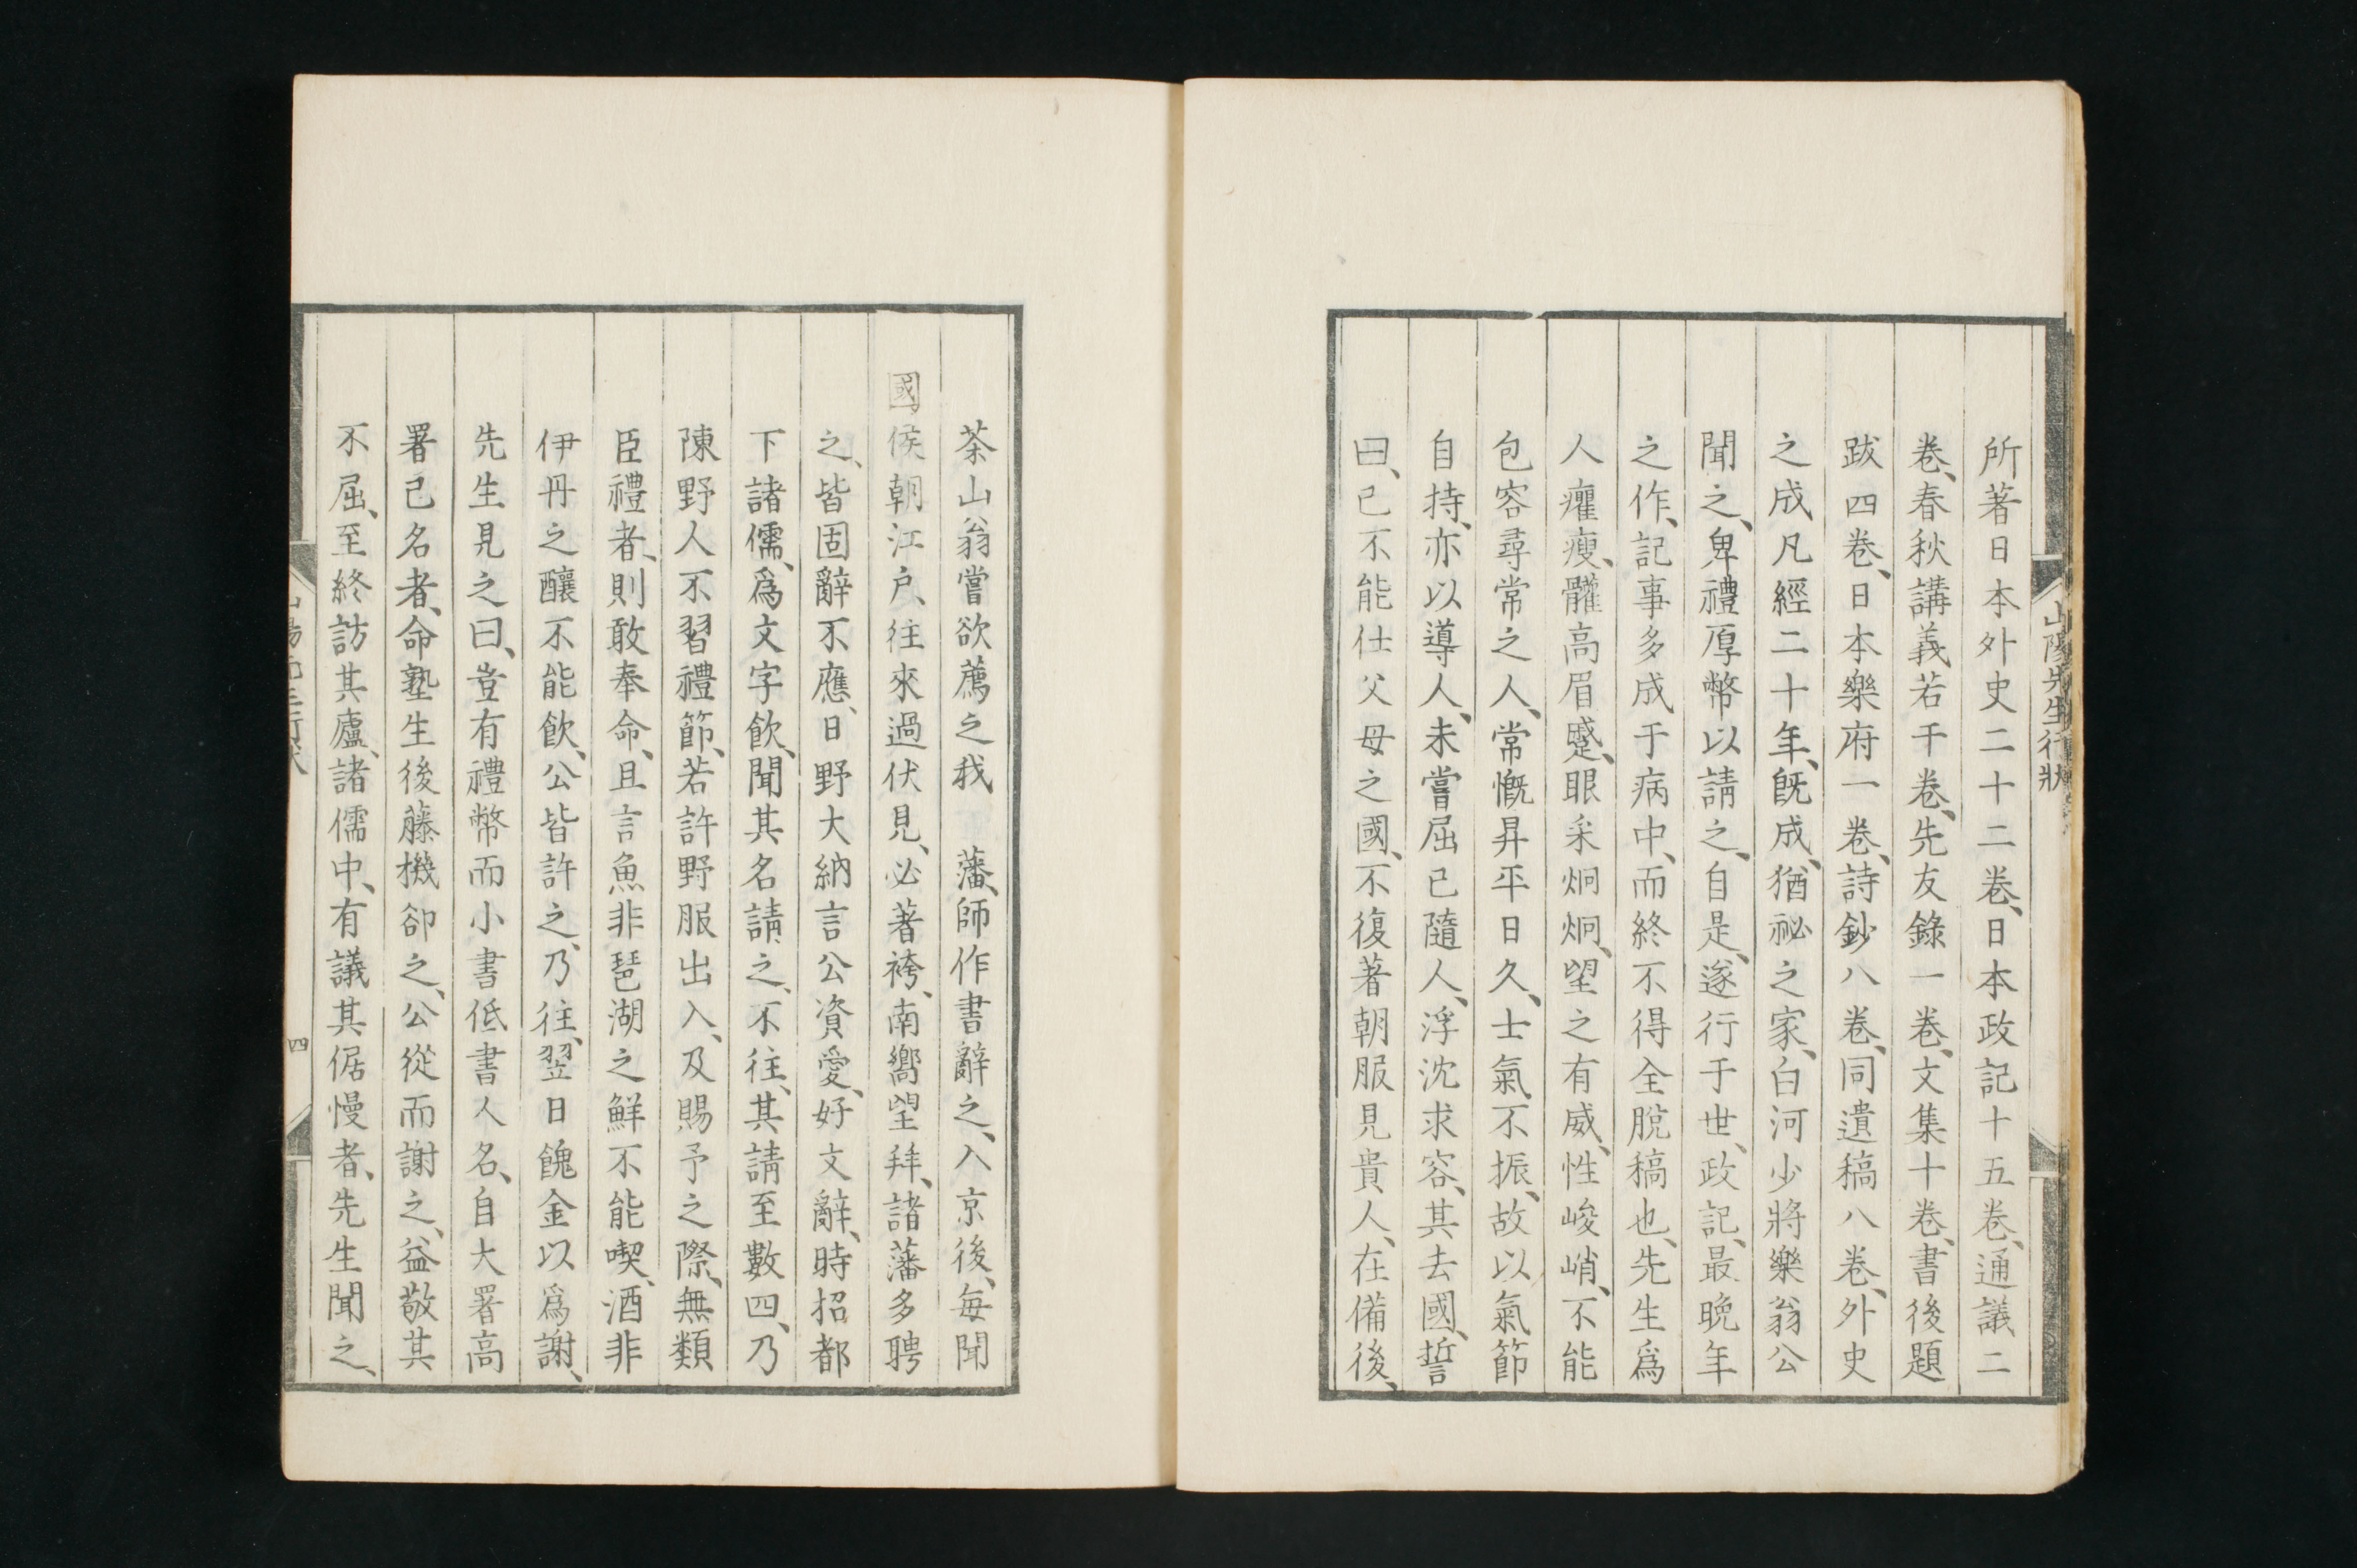 山陽先生行狀
所著日本外史二十二卷、日本政記十五卷、通議二
卷、春秋講義若干卷、先友錄一卷、文集十卷、書後題
跋四卷、日本樂府一卷、詩鈔八卷、同遺稿八卷、外史
之成凡經二十年、既成、猶祕之家、白河少將樂翁公
聞之、卑禮厚幣以請之、自是、遂行于世、政記、最晚年
之作、記事多成于病中、而終不得全脫稿也、先生爲
人癯瘦、髓高眉蹙、眼采炯炯、望之有威、性峻峭、不能
包容尋常之人、常慨昇平日久、士氣不振、故以氣節
自持、亦以導人、未嘗屈己隨人、浮沈求容、其去國、誓
曰、已不能仕父母之國、不復著朝服見貴人、在備後、
茶山翁嘗欲薦之我 藩、師作書辭之、入京後、每聞
國侯朝江戶、往來過伏見、必著袴、南嚮望拜、諸藩多聘
之、皆固辭不應、日野大納言公資愛、好文辭、時招都
下諸儒、爲文字飲、聞其名請之、不往、其請至數四、乃
陳野人不習禮節、若許野服出入、及賜予之際、無類
臣禮者、則敢奉命、且言魚非琶湖之鮮不能喫、酒非
伊丹之釀不能飲、公皆許之、乃往、翌日餽金以爲謝、
先生見之曰、豈有禮幣而小書低書人名、自大署高
署己名者、命塾生後藤機卻之、公從而謝之、益敬其
不屈、至終訪其廬、諸儒中、有議其倨慢者、先生聞之、
四